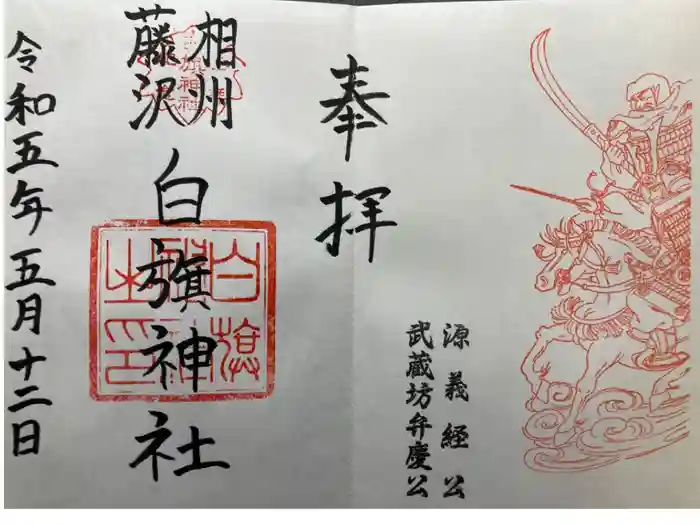 源義経公
武蔵坊弁慶公
奉拝
相州
藤沢
白旗神社
令和五年五月十二日